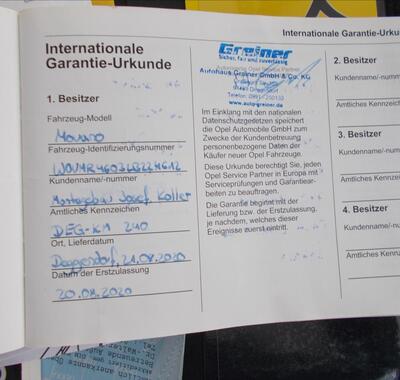 Internationale Garantie-Urku
Internationale
Garantie-Urkunde
1. Besitzer
Fahrzeug-Modell
Movano
Fahrzeug-Identifizierungsnummer
Kundenname/-nummer
Montagebau Josef Koller
Amtliches Kennzeichen
DEG-KM 240
Ort, Lieferdatum
Deggendorf, 21.08.2020
Datum der Erstzulassung
20.08.2020
Greiner
Sicher, fair und zuverlässig
Autorisierter Opel Service Partner
Autohaus Greiner GmbH & Co. KG
www.auto-greiner.de
Im Einklang mit den nationalen
Datenschutzgesetzen speichert
die Opel Automobile GmbH zum
Zwecke der Kundenbetreuung
personenbezogene Daten der
Käufer neuer Opel Fahrzeuge.
Diese Urkunde berechtigt Sie, jeden
Opel Service Partner in Europa mit
Serviceprüfungen und Garantiear-
beiten zu beauftragen.
Die Garantie beginnt mit der
Lieferung bzw. der Erstzulassung,
je nachdem, welches dieser
Ereignisse zuerst eintritt.
2. Besitzer
Kundenname/-numm
Amtliches Kennzeic
3. Besitzer
Kundenname/-n
Amtliches Kenn
4. Besitzer
Kundenname/-n
Amtliches Kenn